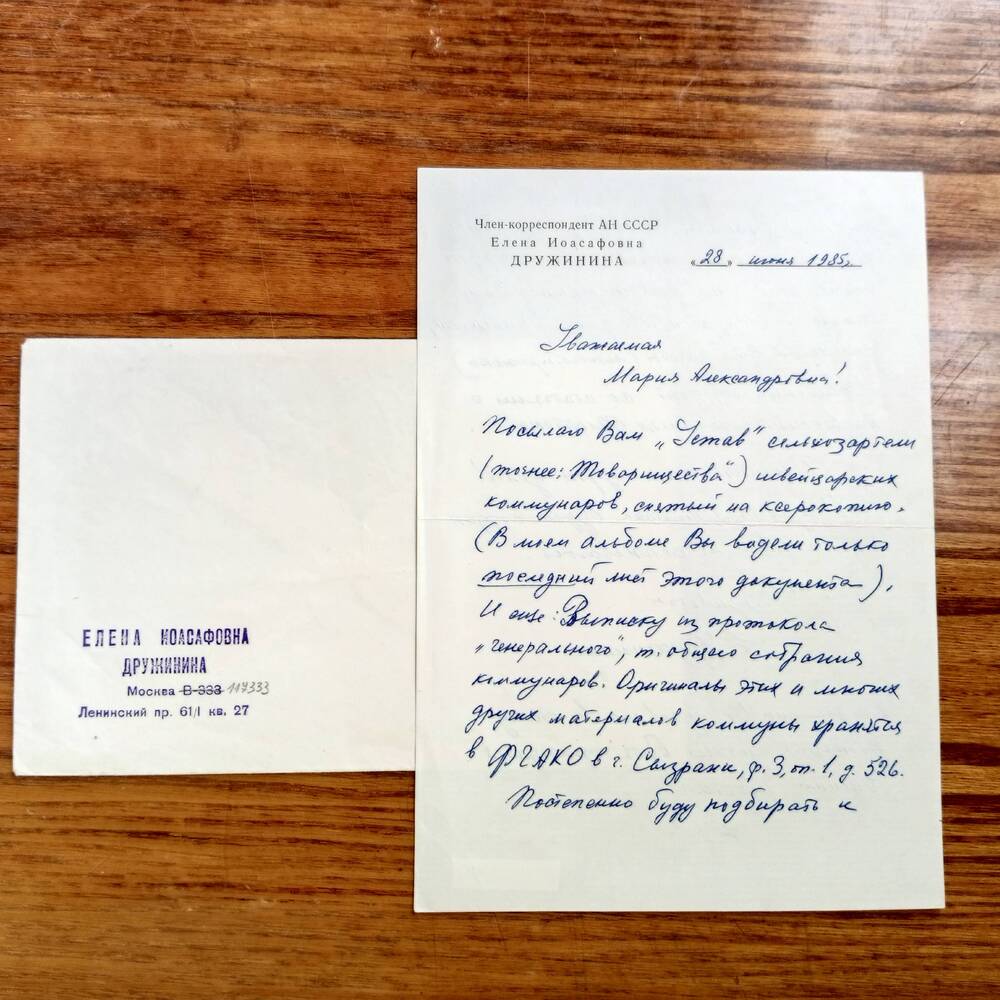 Член-корреспондент АН СССР
Елена Иоасафовна
ДРУЖИНИНА
«28» июня 1985г.
Уважаемая
Мария Александровна!
Посылаю Вам „Устав" сельхозартели
(точнее: Товарищества") швейцарских
коммунаров, снятый на ксерокопию.
(В моем альбоме Вы видели только
последний лист этого документа).
И еще: Выписку из протокола
„генерального", т. общего собрания
коммунаров. Оригиналы этих и многих
других материалов коммуны хранятся
в ФГАКО в г. Сызрани, ф. 3, оп. 1, д. 526.
Постепенно буду подбирать и
ЕЛЕНА ИОАСАФОВНА
ДРУЖИНИНА
Москва В-333 117333
Ленинский пр. 61/1 кв. 27